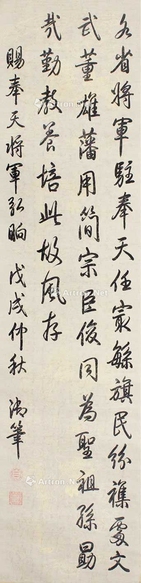 各省將軍駐奉天任最繁旗民紛襍處文
武董雄藩用簡宗臣俊同為聖祖孫勗
哉勤教養培此故風存
賜奉天將軍弘晌 戊戌仲秋 御筆